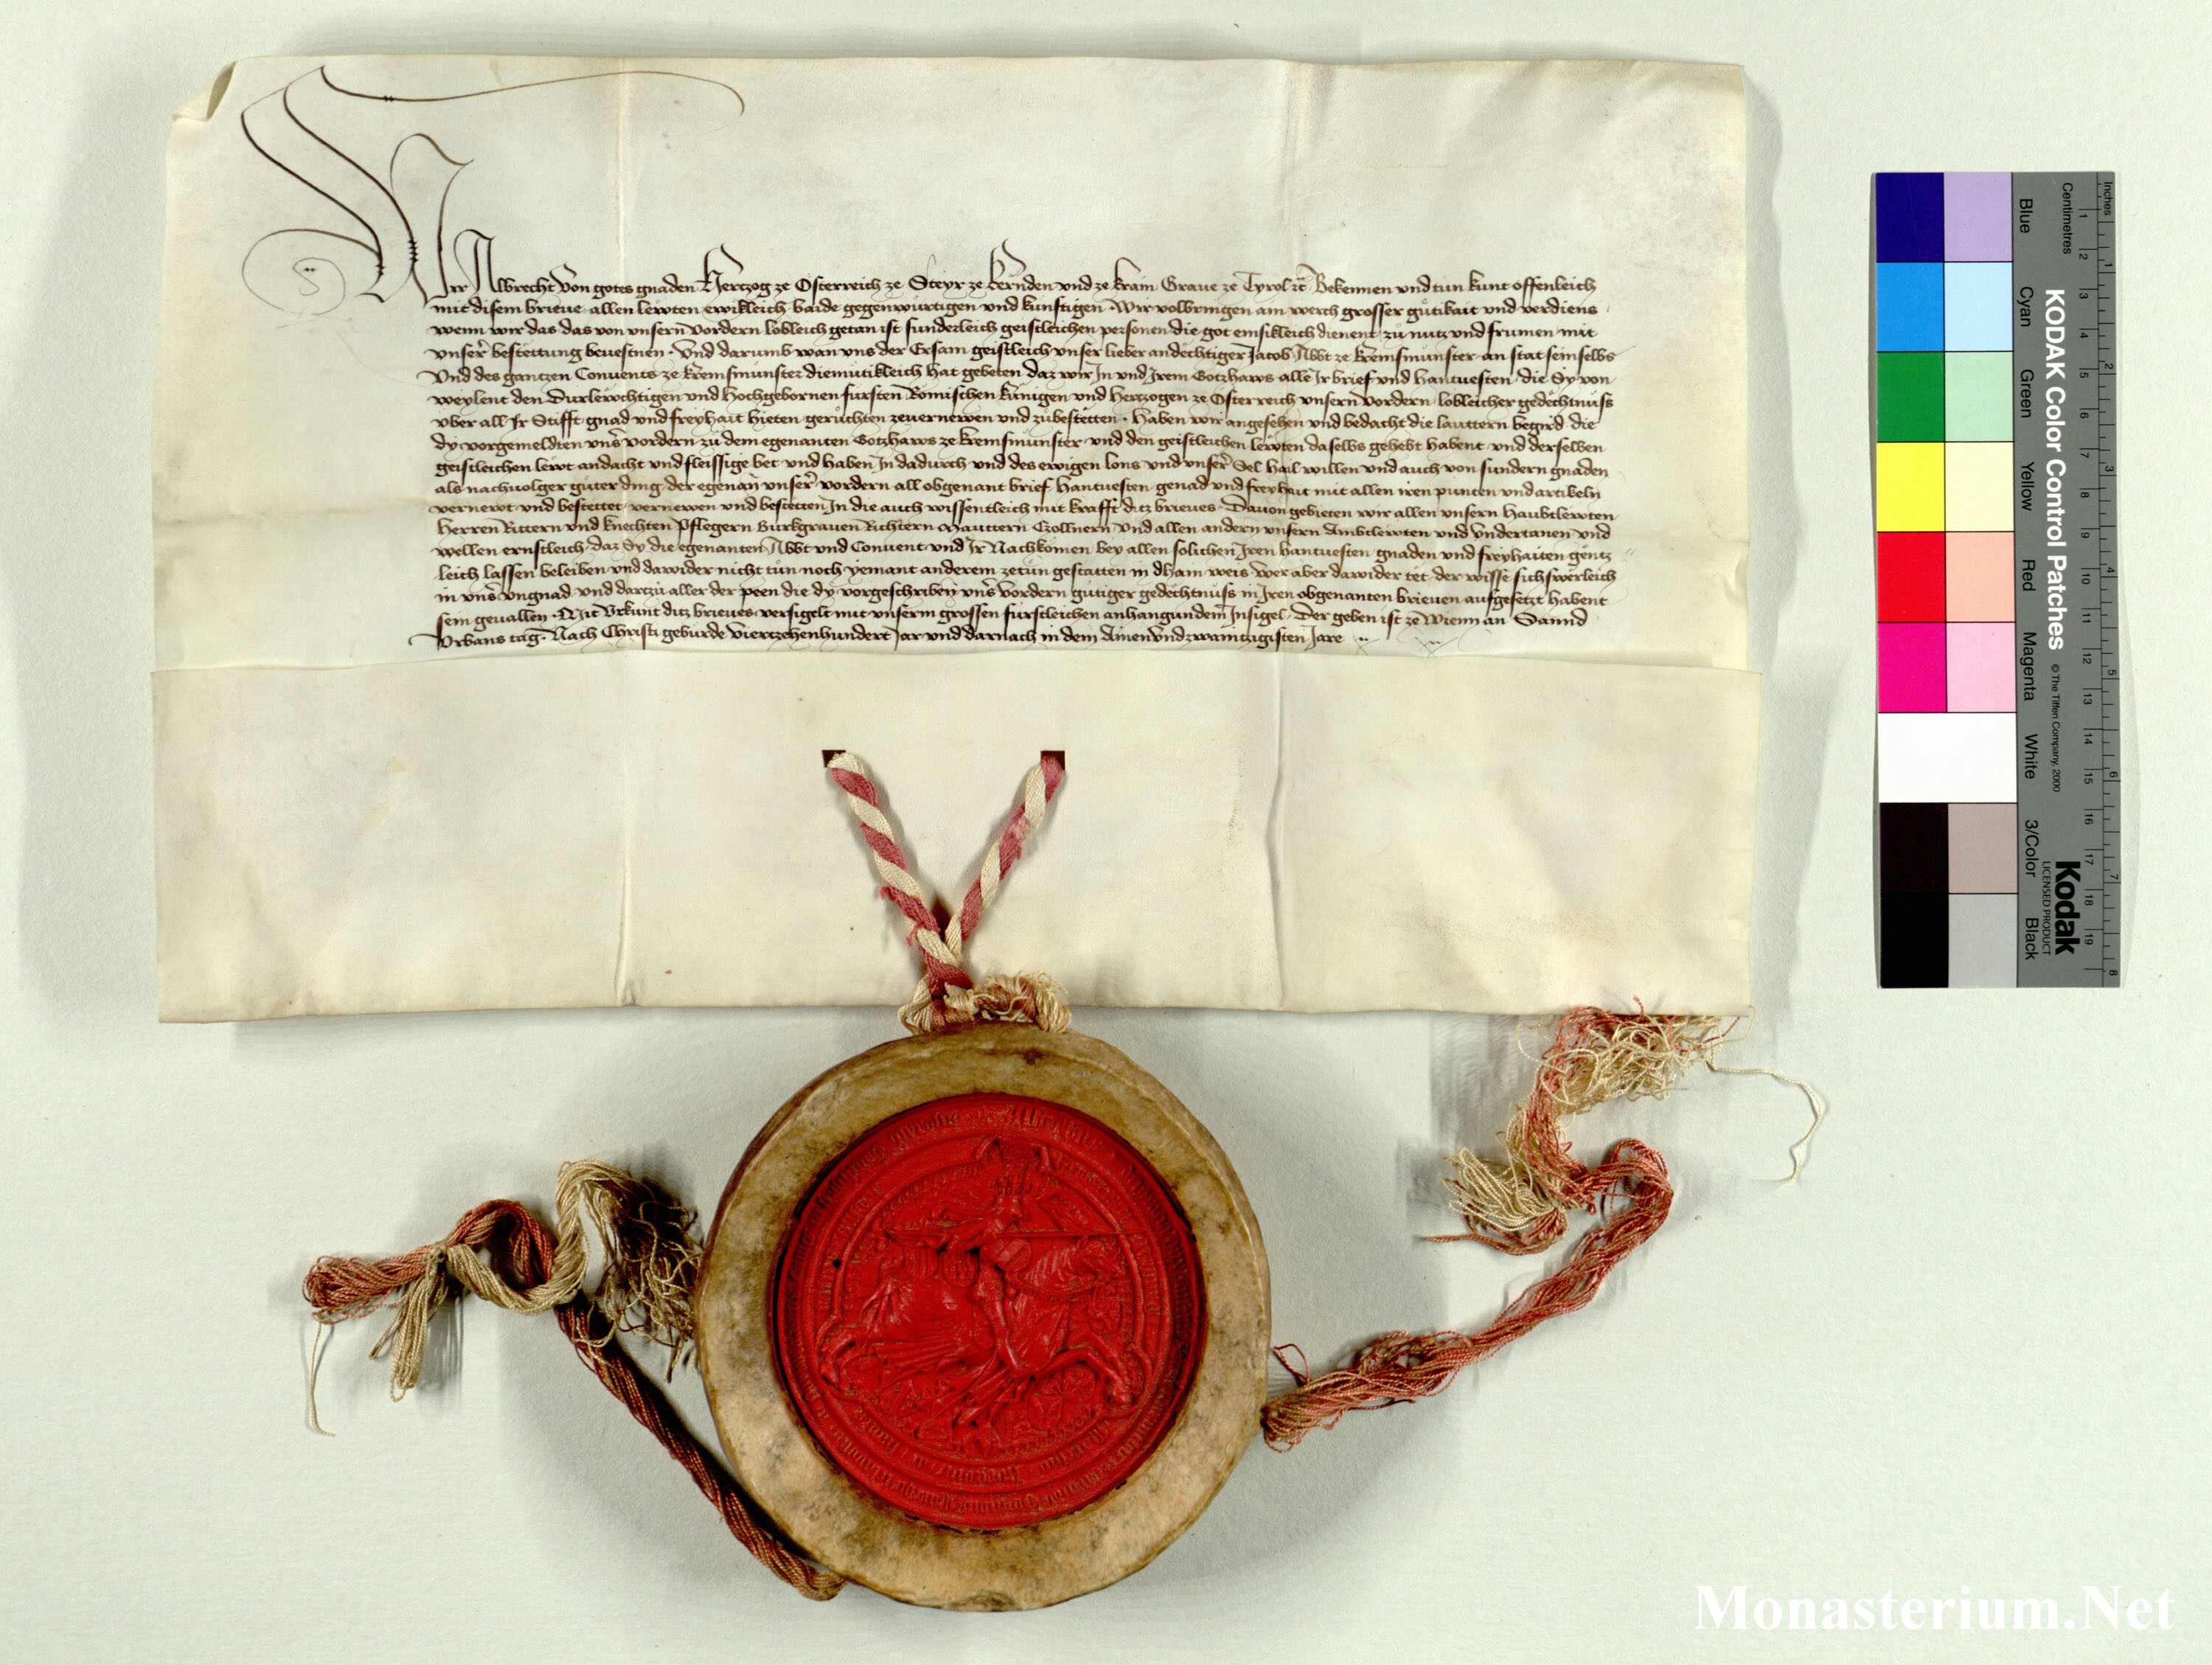 Wir Albrecht von gotes gnaden Hertzog ze Osterreich ze Steyr ze Kernden vnd ze Krain Graue ze Tyrol ꝛc̃ Bekennen vnd tun kunt offenleich
mit disem brieue allen lewten ewikleich baide gegenwurtigen vnd kunftigen · Wir volbringen ain werch grosser gutikait vnd verdiens
wenn wir das das von vnsern vordern lobleich getan ist sunderleich geistleichen personen die got emsikleich dienent zu nutz vnd frumen mit
vnser bestettung beuestnen · Vnd darumb wan vns der Ersam geistleich vnser lieber andechtiger Jacob Abbt ze Kremsmunster an stat sein selbs
Vnd des gantzen Conuents ze Kremsmunster diemutikleich hat gebeten daz wir In vnd Irem Gotzhaws alle Ir brief vnd hantuesten die Sy von
weylent den Durlewchtigen vnd Hochgebornen fursten Romischen Kunigen vnd Hertzogen ze Osterreich vnsern vordern lobleicher gedechtnuss
vber all Ir Stifft gnad vnd freyhait hieten geruchten zeuernewen vnd zubestetten · Haben wir angesehen vnd bedacht die lauttern begird die
dy vorgemeldten vns vordern zu dem egenanten Gotzhaws ze Kremsmunster vnd den geistleichen lewten daselbs gehebt habent vnd derselben
geistleichen lewt andacht vnd fleissige bet vnd haben In dadurch vnd des ewigen lons vnd vnser Sel hail willen vnd auch von sundern gnaden
als nachuolger guter ding der egenan vnser vordern all obgenant brief hantuesten genad vnd freyhait mit allen iren puncten vnd artikeln
vernewt vnd bestettet vernewen vnd bestetten In die auch wissentleich mit krafft ditz brieues · Dauon gebieten wir allen vnsern haubtlewten
Herren Rittern vnd knechten Pflegern Burkgrauen Richtern Mauttern Czollnern vnd allen andern vnsern Ambtlewten vnd vndertanen vnd
wellen ernstleich daz Sy die egenanten Abbt vnd Conuent vnd Ir Nachkomen bey allen solichen Iren hantuesten gnaden vnd freyhaiten gentz
leich lassen beleiben vnd dawider nicht tun noch yemant anderem zetun gestatten in dhain weis wer aber dawider tet der wisse sich swerleich
in vns vngnad vnd dartzu aller der peen die dy vorgeschriben vns vordern gutiger gedechtnuss in Iren obgenanten brieuen aufgesetzt habent
sein geuallen · Mit Vrkunt ditz brieues versigelt mit vnserm grossen furstleichen anhangundem Insigel · Der geben ist ze Wienn an Sannd
Vrbans tag · Nach Christi geburde Viertzehenhundert Jar vnd darnach in dem Ainenvndzwaintzigisten Jare
Inches
Centimetres
KODAK Color Control Patches © The Tiffen Company, 2000
Kodak
LICENSED PRODUCT
Blue Cyan Green Yellow Red Magenta White 3/Color Black
1 2 3 4 5 6 7 8 9 10 11 12 13 14 15 16 17 18 19
1 2 3 4 5 6 7 8
Monasterium.Net